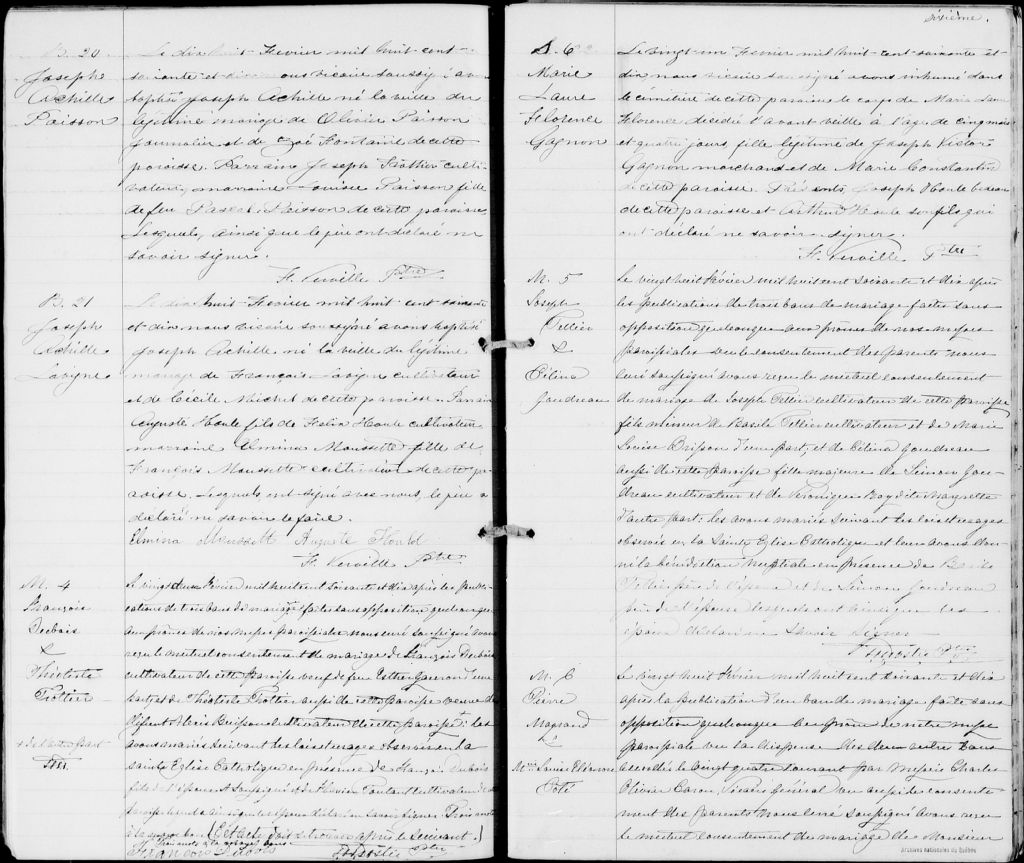 B. 20
Joseph
Achille
Paisson
Le dix huit Fevrier mil huit cent
soixante et dix nous vicaire soussigné avons
baptisé Joseph Achille né la veille du
légitime mariage de Olivier Paisson
Journalier et de Zoé Fontaine de cette
paroisse. Parrain Joseph Trottier culti-
vateur, marraine Louise Paisson fille
de feu Pascal Paisson de cette paroisse
Lesquels, ainsi que le père ont déclaré ne
savoir signer.
H. Verville Ptre
B. 21
Joseph
Achille
Lavigne
Le dix huit Fevrier mil huit cent soixante
et dix nous vicaire soussigné avons baptisé
Joseph Achille né la veille du légitime
mariage de François Lavigne cultivateur
et de Cécile Michel de cette paroisse. Parrain
Auguste Houle fils de Felix Houle cultivateur
marraine Elmina Moussette fille de
François Moussette cultivateur de cette pa-
roisse. Lesquels ont signé avec nous, le père a
déclaré ne savoir le faire.
Elmina Moussett Auguste Hould
H. Verville Ptre
M. 4
François
Dubois
&
Théotiste
Trottier
Le vingt deux Février mil huit cent soixante et dix après les publi-
cations de trois bans de mariage faites sans opposition quelconque
aux prônes de nos messes paroissiales nous curé soussigné avons
reçu le mutuel consentement de mariage de François Dubois
cultivateur de cette paroisse veuf de feu Esther Gaeron d'une
part et de Théotiste Trottier aussi de cette paroisse veuve de
défunt Alexis Brisson cultivateur de cette paroisse + les
avons mariés suivant les lois et usages observés en la
sainte Eglise Catholique en présence de François Dubois
fils de l'époux soussigné et de Flavien Toutant cultivateur
+ de l'autre part
Ptre
(Cet acte doit se trouver après le suivant.)
François Dubois
Ptre
sixième.
S. 6
Marie
Laure
Florence
Gagnon
Le vingt un Fevrier mil huit cent soixante et
dix nous vicaire soussigné avons inhumé dans
le cimetière de cette paroisse le corps de Marie Laure
Florence décédée l'avant veille à l'age de cinq mois
et quatre jours, fille légitime de Joseph Victor
Gagnon marchand et de Marie Constantin
de cette paroisse. Présents, Joseph Houle bedeau
de cette paroisse et Arthur Houle son fils qui
ont déclaré ne savoir signer.
H. Verville Ptre
M. 5
Joseph
Tellier
&
Célina
Gaudreau
Le vingt huit Février mil huit cent soixante et dix après
les publications de trois bans de mariage faites sans
opposition quelconque aux prônes de nos messes
paroissiales vu le consentement des parents nous
curé soussigné avons reçu le mutuel consentement
de mariage de Joseph Tellier cultivateur de cette paroisse
fils mineur de Basile Tellier cultivateur et de Marie
Louise Brisson d'une part, et de Célina Gaudreau
aussi de cette paroisse fille majeure de Simon Gau-
dreau cultivateur et de Véronique Roy dite
d'autre part: les avons mariés suivant les lois et usages
observés en la Sainte Eglise Catholique et leur avons don-
né la bénédiction nuptiale en présence de Basile
Tellier père de l'époux et de Simon Gaudreau
père de l'épouse lesquels ont ainsi que les
époux déclaré ne savoir signer
Ptre
M. 6
Pierre
Magrand
&
Mie Louise Eléonore
Coté
Le vingt huit Février mil huit cent soixante et dix
après la publication d'un ban de mariage faite sans
opposition quelconque au prône de notre messe
paroissiale vu la dispense des deux autres bans
accordée le vingt quatre courant par Messire Charles
Olivier Caron, Vicaire Général vu aussi le consente-
ment des parents nous curé soussigné avons reçu
le mutuel consentement de mariage de Monsieur
Archives nationales du Québec